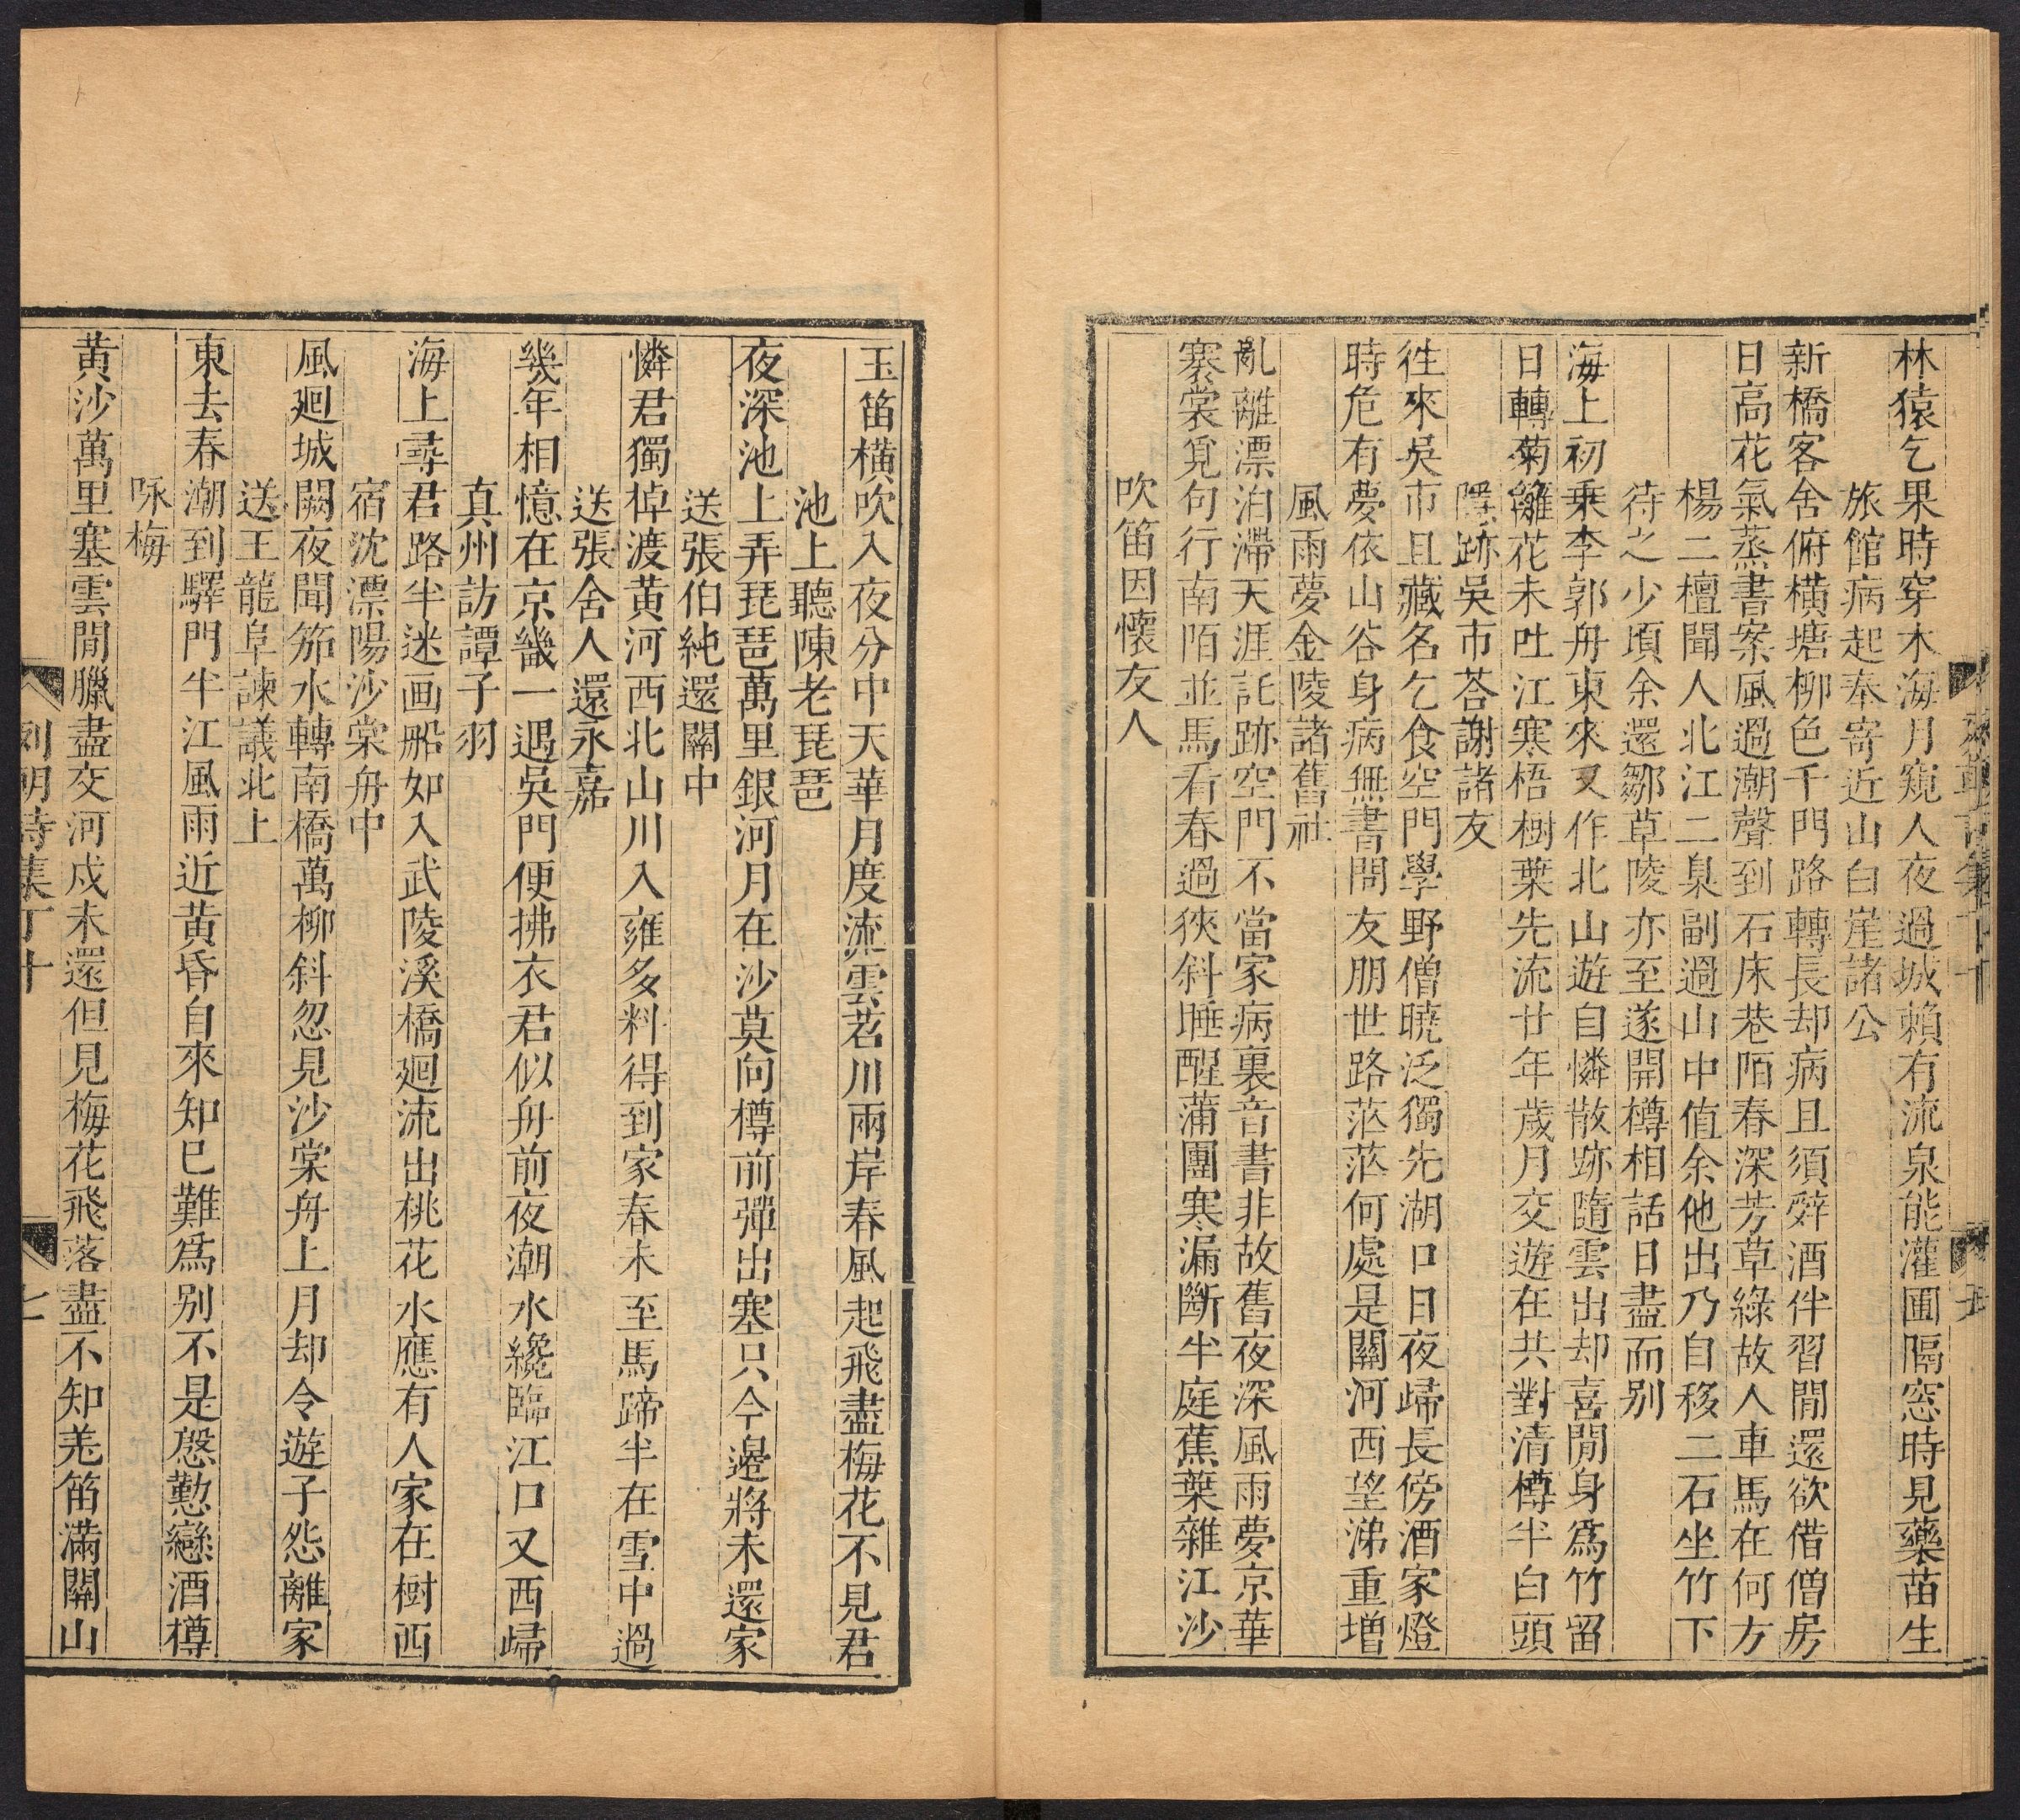 林猿乞果時穿木海月窺人夜過城賴有流泉能灌圃隔窓時見藥苗生
旅館病起奉寄近山白崖諸公
新橋客舍俯橫塘柳色千門路轉長却病且須辭酒伴習閒還欲借僧房
日高花氣蒸書案風過潮聲到石床巷陌春深芳草綠故人車馬在何方
楊二檀聞人北江二臬副過山中值余他出乃自移二石坐竹下
待之少頃余還鄒草陵亦至遂開樽相話日盡而别
海上初乗李郭舟東來又作北山遊自憐散跡隨雲出却喜閒身爲竹留
日轉菊籬花未吐江寒梧樹葉先流廿年歲月交遊在共對清樽半白頭
隱跡吳市荅謝諸友
徃來吳市且藏名乞食空門學野僧曉泛獨先湖口日夜歸長傍酒家燈
時危有夢依山谷身病無書問友朋世路茫茫何處是關河西望涕重增
風雨夢金陵諸舊社
亂離漂泊滯天涯託跡空門不當家病裏音書非故舊夜深風雨夢京華
褰裳覓句行南陌並馬看春過狹斜㽸醒蒲團寒漏斷半庭蕉葉雜江沙
吹笛因懷友人
玉笛橫吹入夜分中天華月度流雲茗川兩岸春風起飛盡梅花不見君
池上聽陳老琵琶
夜深池上弄琵琶萬里銀河月在沙莫向樽前彈出塞只今邊將未還家
送張伯純還關中
憐君獨棹渡黄河西北山川入雍多料得到家春未至馬蹄半在雪中過
送張舍人還永嘉
幾年相憶在京畿一遇吳門便拂衣君似舟前夜潮水纔臨江口又西歸
真州訪譚子羽
海上尋君路半迷画船如入武陵溪橋廻流出桃花水應有人家在樹西
宿沈漂陽沙棠舟中
風廻城闕夜聞笳水轉南橋萬柳斜忽見沙棠舟上月却令遊子怨離家
送王龍阜諫議北上
東去春潮到驛門半江風雨近黄昏自來知已難爲别不是慇懃戀酒樽
咏梅
黄沙萬里塞雲閒臘盡交河戍未還但見梅花飛落盡不知羌笛滿關山
列朝詩集丁十
七